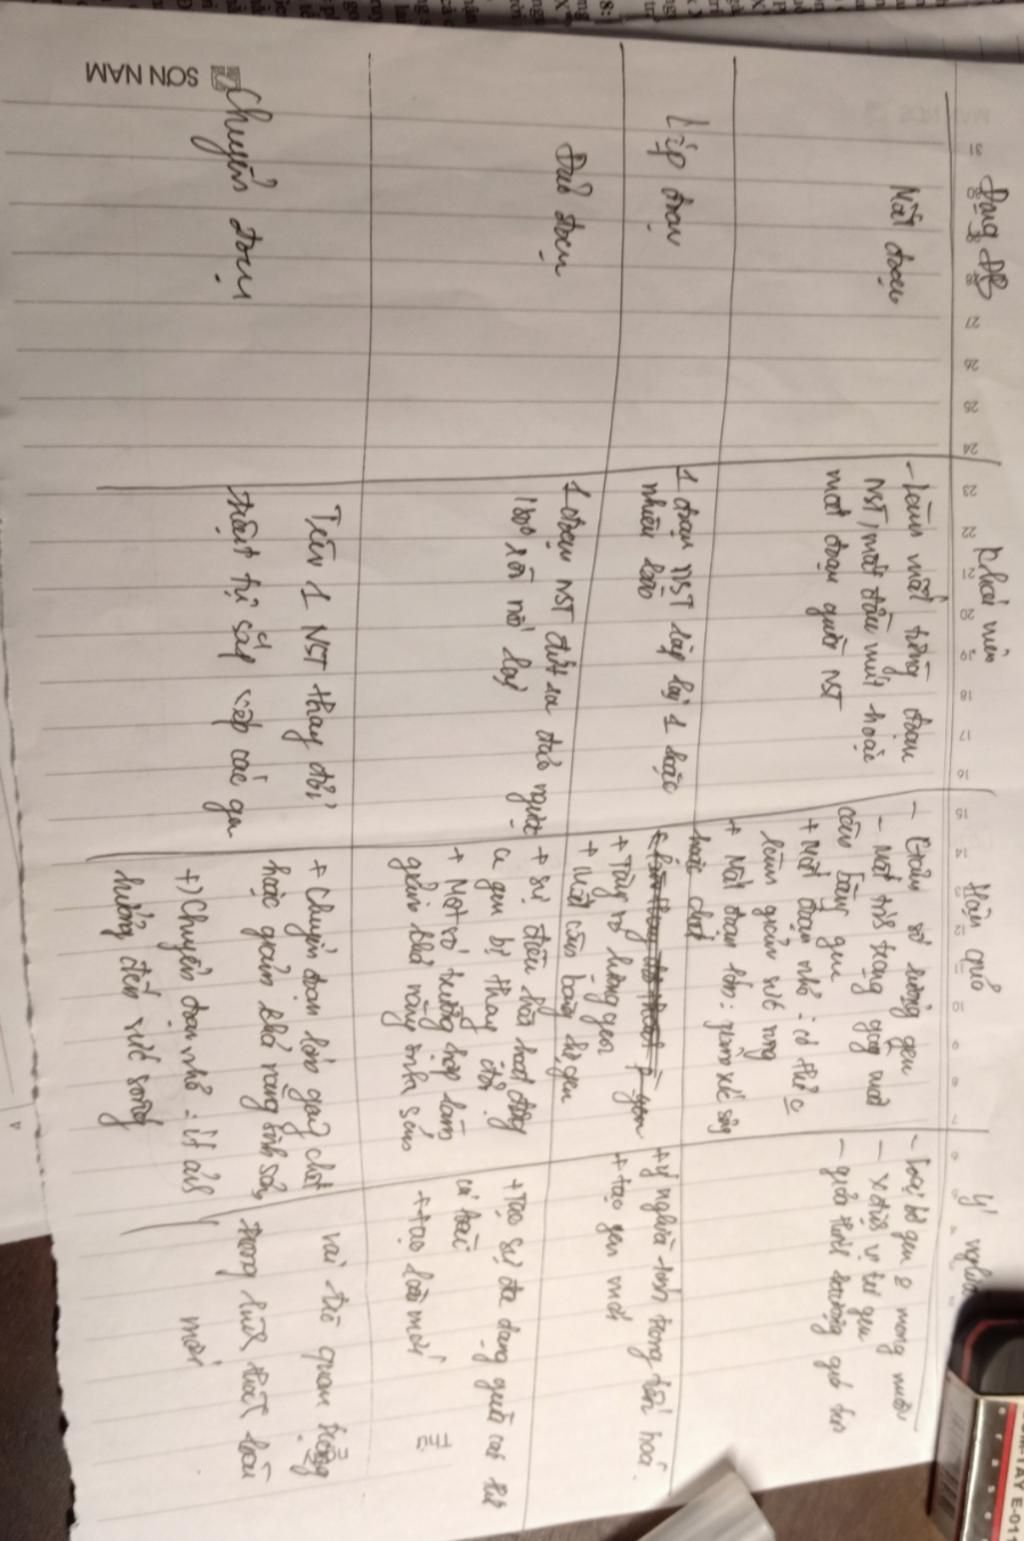 Dạng ĐB
Khái niệm
Hậu quả
Ý nghĩa
Mất đoạn
- Làm mất từng đoạn
NST, mất đầu mút hoặc
một đoạn giữa NST
- Giảm số lượng gen
- Mất tính trạng gây mất
cân bằng gen
+ Mất đoạn nhỏ: có thể
làm giảm sức sống
+ Mất đoạn lớn: giảm sức sống
hoặc chết
- Loại bỏ gen mong muốn
- Xđịnh vị trí gen
- giải thích
Lặp đoạn
1 đoạn NST lặp lại 1 hoặc
nhiều lần
+ Tăng số lượng gen
+ Mất cân bằng hệ gen
+ Ý nghĩa lớn trong tiến hoá
+ tạo gen mới
Đảo đoạn
1 đoạn NST đứt ra đảo ngược
180 rồi nối lại
+ sự điều hoà hoạt động
của gen bị thay đổi.
+ Một số trường hợp làm
giảm khả năng sinh sản
+ Tạo sự đa dạng giữa các thứ
+ tạo loài mới
Chuyển đoạn
Trên 1 NST thay đổi
trật tự sắp xếp các gen
+ Chuyển đoạn lớn gây chết
hoặc giảm khả năng sinh sản
+) Chuyển đoạn nhỏ: ít ảnh
hưởng đến sức sống
vai trò quan trọng
trong hình thành loài
mới
SƠN NAM
31
30
28
27
26
25
24
23
22
21
20
19
18
17
16
15
14
13
12
11
10
9
8
7
6